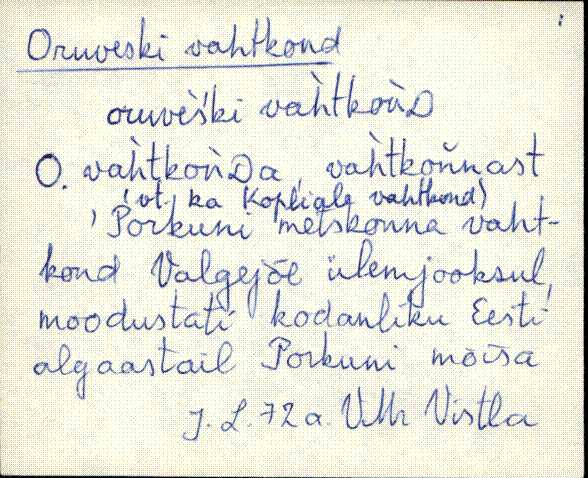 Oruveski vahtkond
oruvèśki vah̀tkoǹD
O. vah̀tkoǹDa, vah̀tkoňnast
(vt. ka Koplialg vahtkond)
, Porkuni metskonna vaht-
kond Valgejõe ülemjooksul,
moodustati kodanliku Eesti
algaastail Porkuni mõisa
J. L. 72 a. VMr Vistla